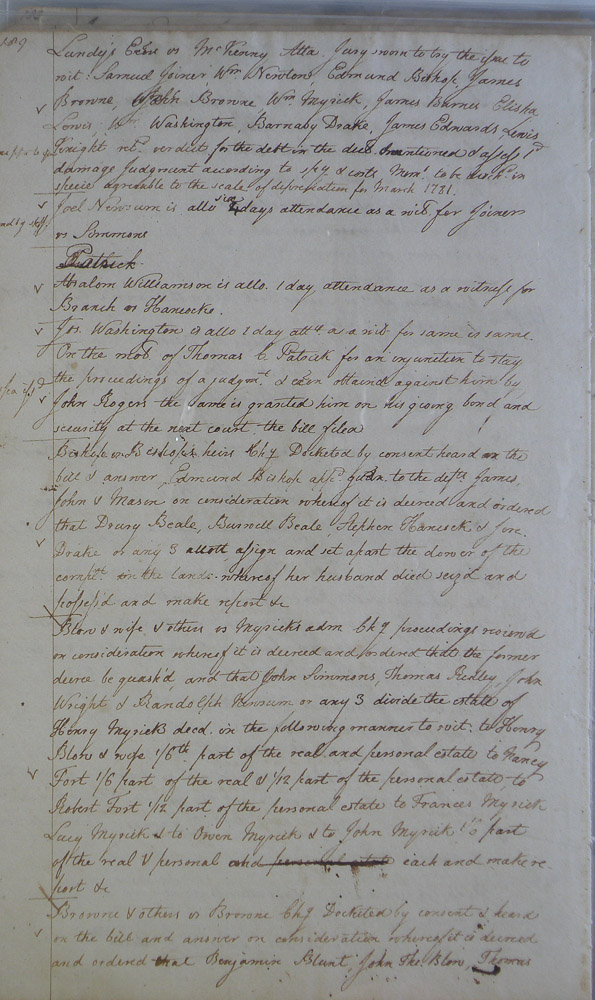 Lundy's Exor vs McKenny Atta. Jury sworn to try the issue to
wit: Samuel Joiner, Wm Newsom, Edmund Bishop, James
Browne, Browne Wm Myrick, James Barnes Elisha
Lewis, Washington, Barnaby Drake, James Edwards Lewis
Knight retd. verdict for the debt in the mentioned & assess 1d
damage Judgment according to & costs to be disch. in
specie agreeable to the scale of depreciation for March 1781.
Joel Newsum is allo 2 days attendance as a wit. for Joiner
vs Simmons
Patrick
Absalom Williamson is allo. 1 day attendance as a witness for
Branch vs Hancocke.
Jos. Washington is allo 1 day attd. as a wit. for same vs same.
On the mot. of Thomas C Patrick for an injunction to stay
the proceedings of a judgmt. & exon obtaind against him by
John Rogers the same is granted him on his giving bond and
security at the next court the bill filed
Bishop vs Bishop's heirs Chy Docketed by consent heard on the
bill & answer, Edmund Bishop appd. gudn. to the defts James,
John & Mason on consideration whereof it is decreed and ordered
that Drury Beale, Burnell Beale, Stephen Hancock & Jere.
Drake or any 3 allott assign and set apart the dower of the
complt. in the lands whereof her husband died seiz'd and
possess'd and make report &c
Blow & wife & others vs Myrick's adm Chy proceedings reviewd
on consideration whereof it is decreed and ordered that the former
decree be quash'd, and that John Simmons, Thomas Ridley, John
Wright & Randolph Newsum or any 3 divide the estate of
Henry Myrick decd. in the following manner to wit: to Henry
Blow & wife 1/6th part of the real and personal estate to Nancy
Fort 1/6 part of the real & 1/12 part of the personal estate to
Robert Fort 1/12 part of the personal estate to Frances Myrick
Lucy Myrick & to Owen Myrick & to John Myrick 1/6 part
of the real & personal and personal estate each and make re-
port &c
Browne & others vs Browne Chy Docketed by consent & heard
on the bill and answer on consideration whereof it is decreed
and ordered that Benjamin Blunt, John Tho. Blow, Thomas